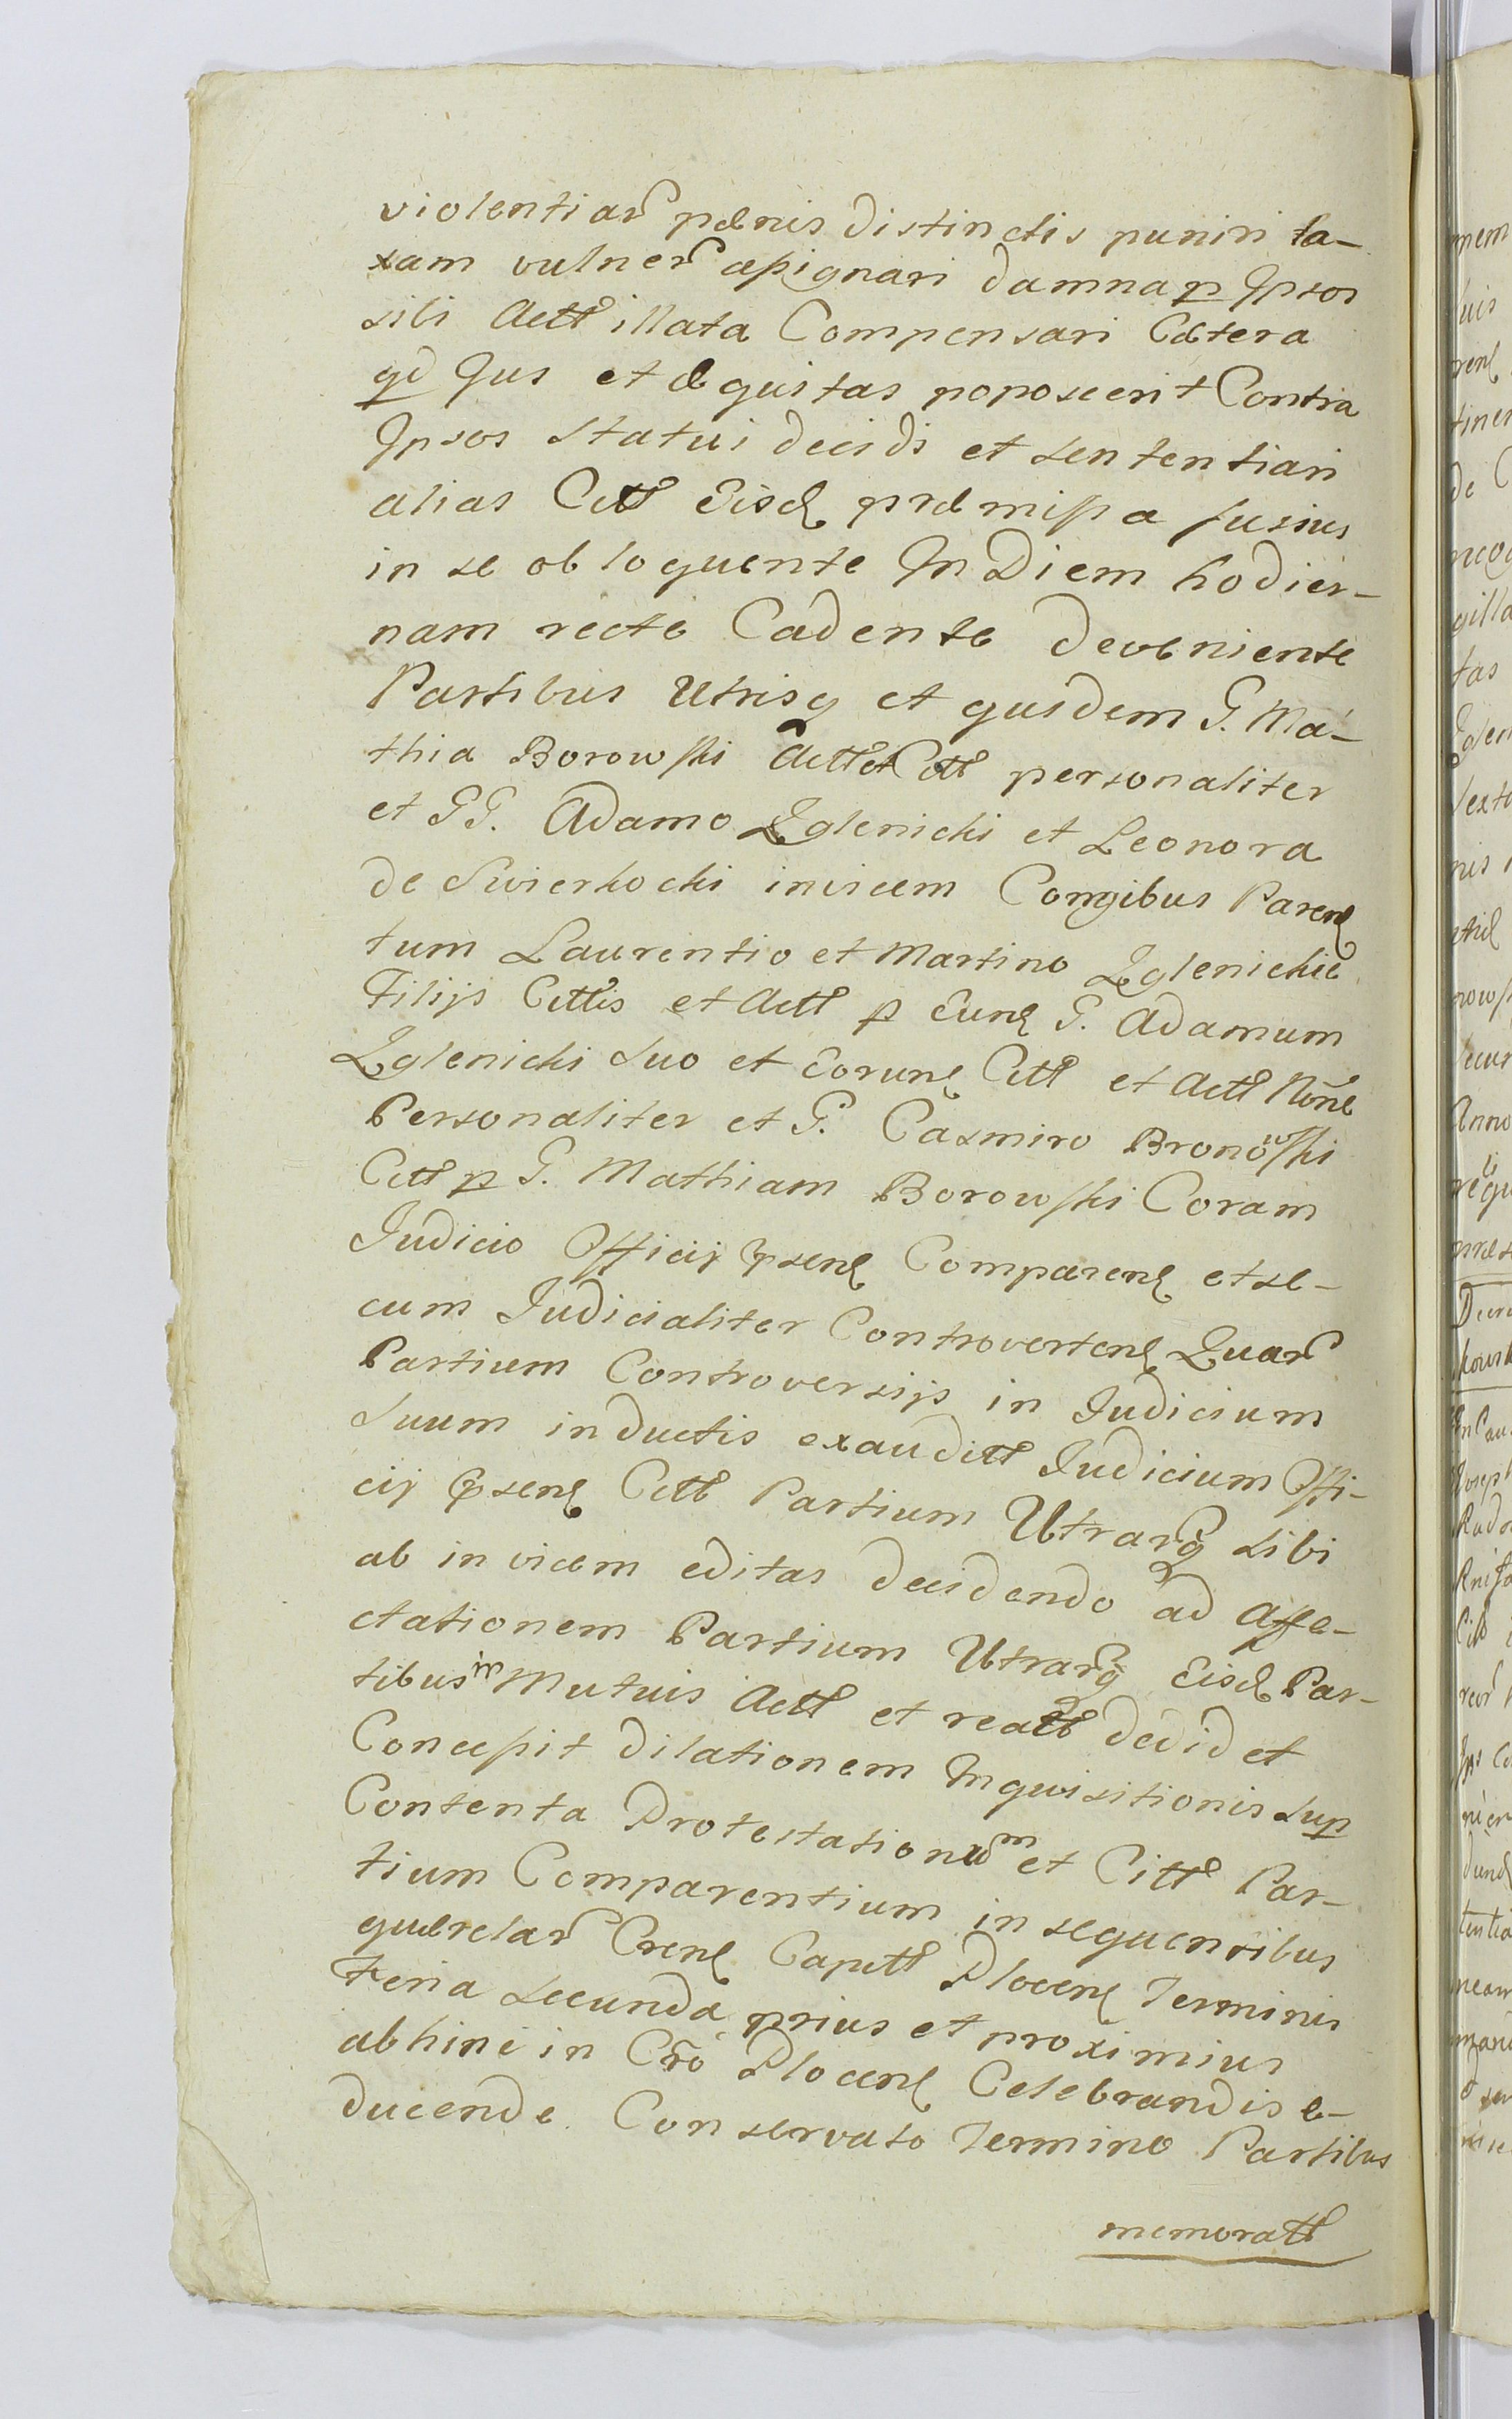 violentiar pænis distinctis puniri ta-
xam vulner assignari damna p Ipsos
sibi Actt illata Compensari Cætera
qd Jus et æquitas poposcerit Contra
Ipsos statui decidi et sententiari
alias Citt Eisd præmissa fusius
in se obloquente In Diem hodier-
nam recte Cadente deveniente
Partibus Utrisq et quidem G. Ma-
thia Borowski Actt et Citt personaliter
et GG. Adamo Zglenicki et Leonora
de Swierkocki invicem Coniugibus Paren
tum Laurentio et Martino Zglenickie
Filijs Cittis et Actt p Eund G. Adamum
Zglenicki suo et Eorund Citt et Actt Nõne
Personaliter et G. Casmiro Bronowski
Citt p G. Mathiam Borowski Coram
Judicio Officij psend Comparend et se-
cum Judicialiter Controvertend Quar
Partium Controversijs in Judicium
suum inductis exauditt Judicium Offi-
cij psend Citt Partium Utrarq sibi
ab invicem editas decidendo ad affe-
ctationem Partium Utrarq Eisd Par-
tibus in Mutuis Actt et reatt dedid et
Concessit dilationem Inquisitionis sup
Contenta Protestationum et Citt Par-
tium Comparentium in sequentibus
querelar Crend Capitt Plocend Terminis
Feria secunda prius et proximius
abhinc in Cro Plocend Celebrandis e-
ducende. Conservato Termino Partibus
memoratt